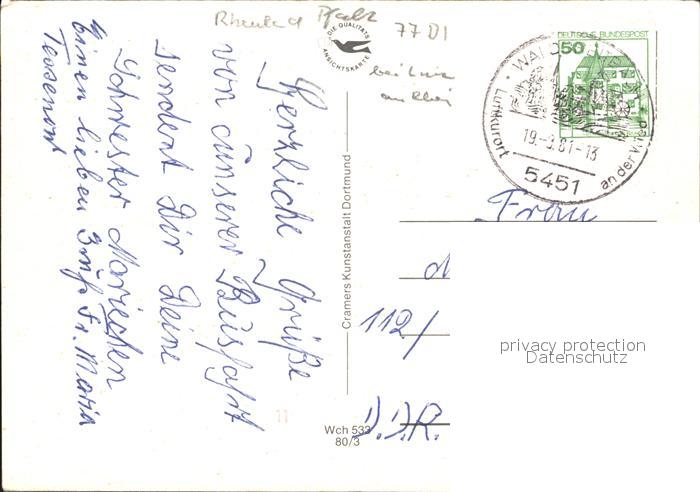 Rheinland Pfalz
77 DI
bei Linz
am Rhein
DIE QUALITÄTS
ANSICHTSKARTE
DEUTSCHE BUNDESPOST
50
Luftkurort
19.-9.81-13
5451
an der Wied
Herzliche Grüße
von unserer Busfahrt
sendet Dir Deine
Schwester Mariechen
Einen lieben Gruß Fr. Maria
Cramers Kunstanstalt Dortmund
Frau
112/
D.D.R.
11
Wch 533
80/3
privacy protection
Datenschutz